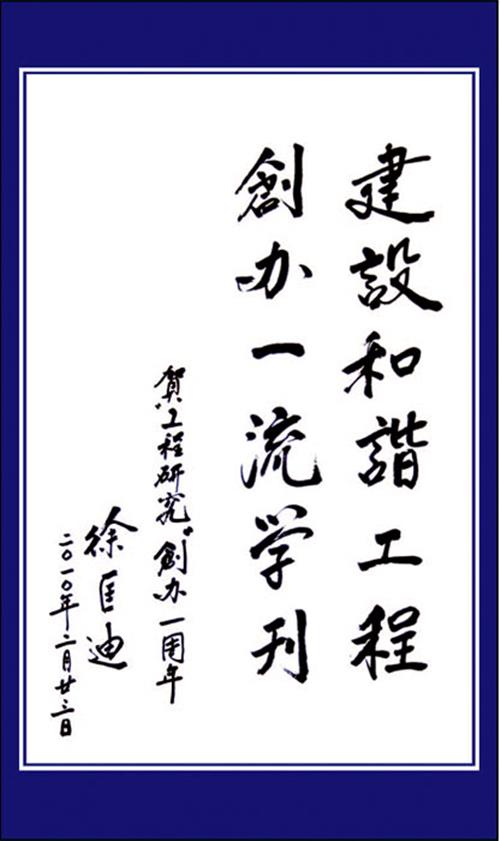 建設和諧工程
創办一流学刊
賀“工程研究”創办一周年
徐匡迪
二〇一〇年二月廿三日